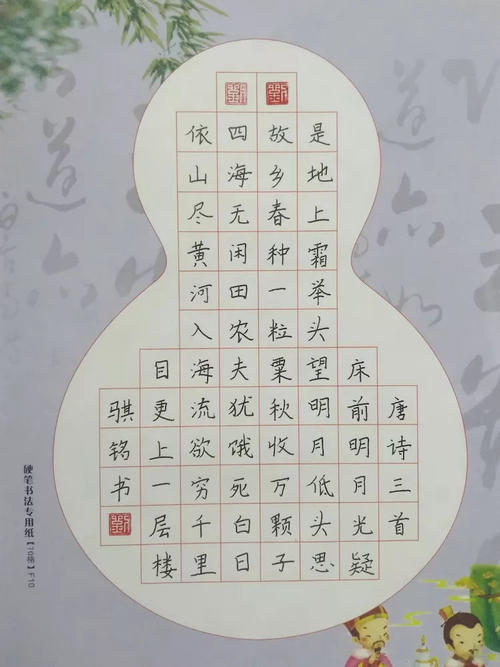 唐诗三首
床前明月光疑
是地上霜举头望明月低头思
故乡春种一粒粟秋收万颗子
四海无闲田农夫犹饿死白日
依山尽黄河入海流欲穷千里
目更上一层楼
骐铭书
劉
劉
劉
硬笔书法专用纸【70格】F10